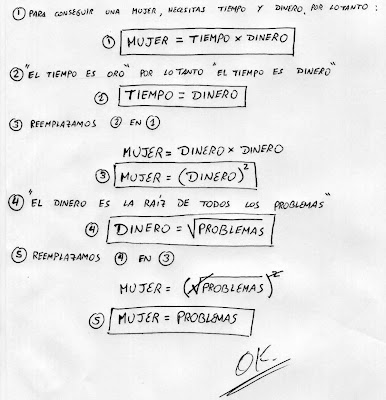 ① PARA CONSEGUIR UNA MUJER, NECSITAS TIEMPO Y DINERO, POR LO TANTO :
① MUJER = TIEMPO × DINERO
② "EL TIEMPO ES ORO" POR LO TANTO "EL TIEMPO ES DINERO"
② TIEMPO = DINERO
③ REEMPLAZAMOS ② EN ①
MUJER = DINERO × DINERO
③ MUJER = (DINERO)²
④ "EL DINERO ES LA RAÍZ DE TODOS LOS PROBLEMAS"
④ DINERO = √PROBLEMAS
⑤ REEMPLAZAMOS ④ EN ③
MUJER = (√PROBLEMAS)²
⑤ MUJER = PROBLEMAS
OK.